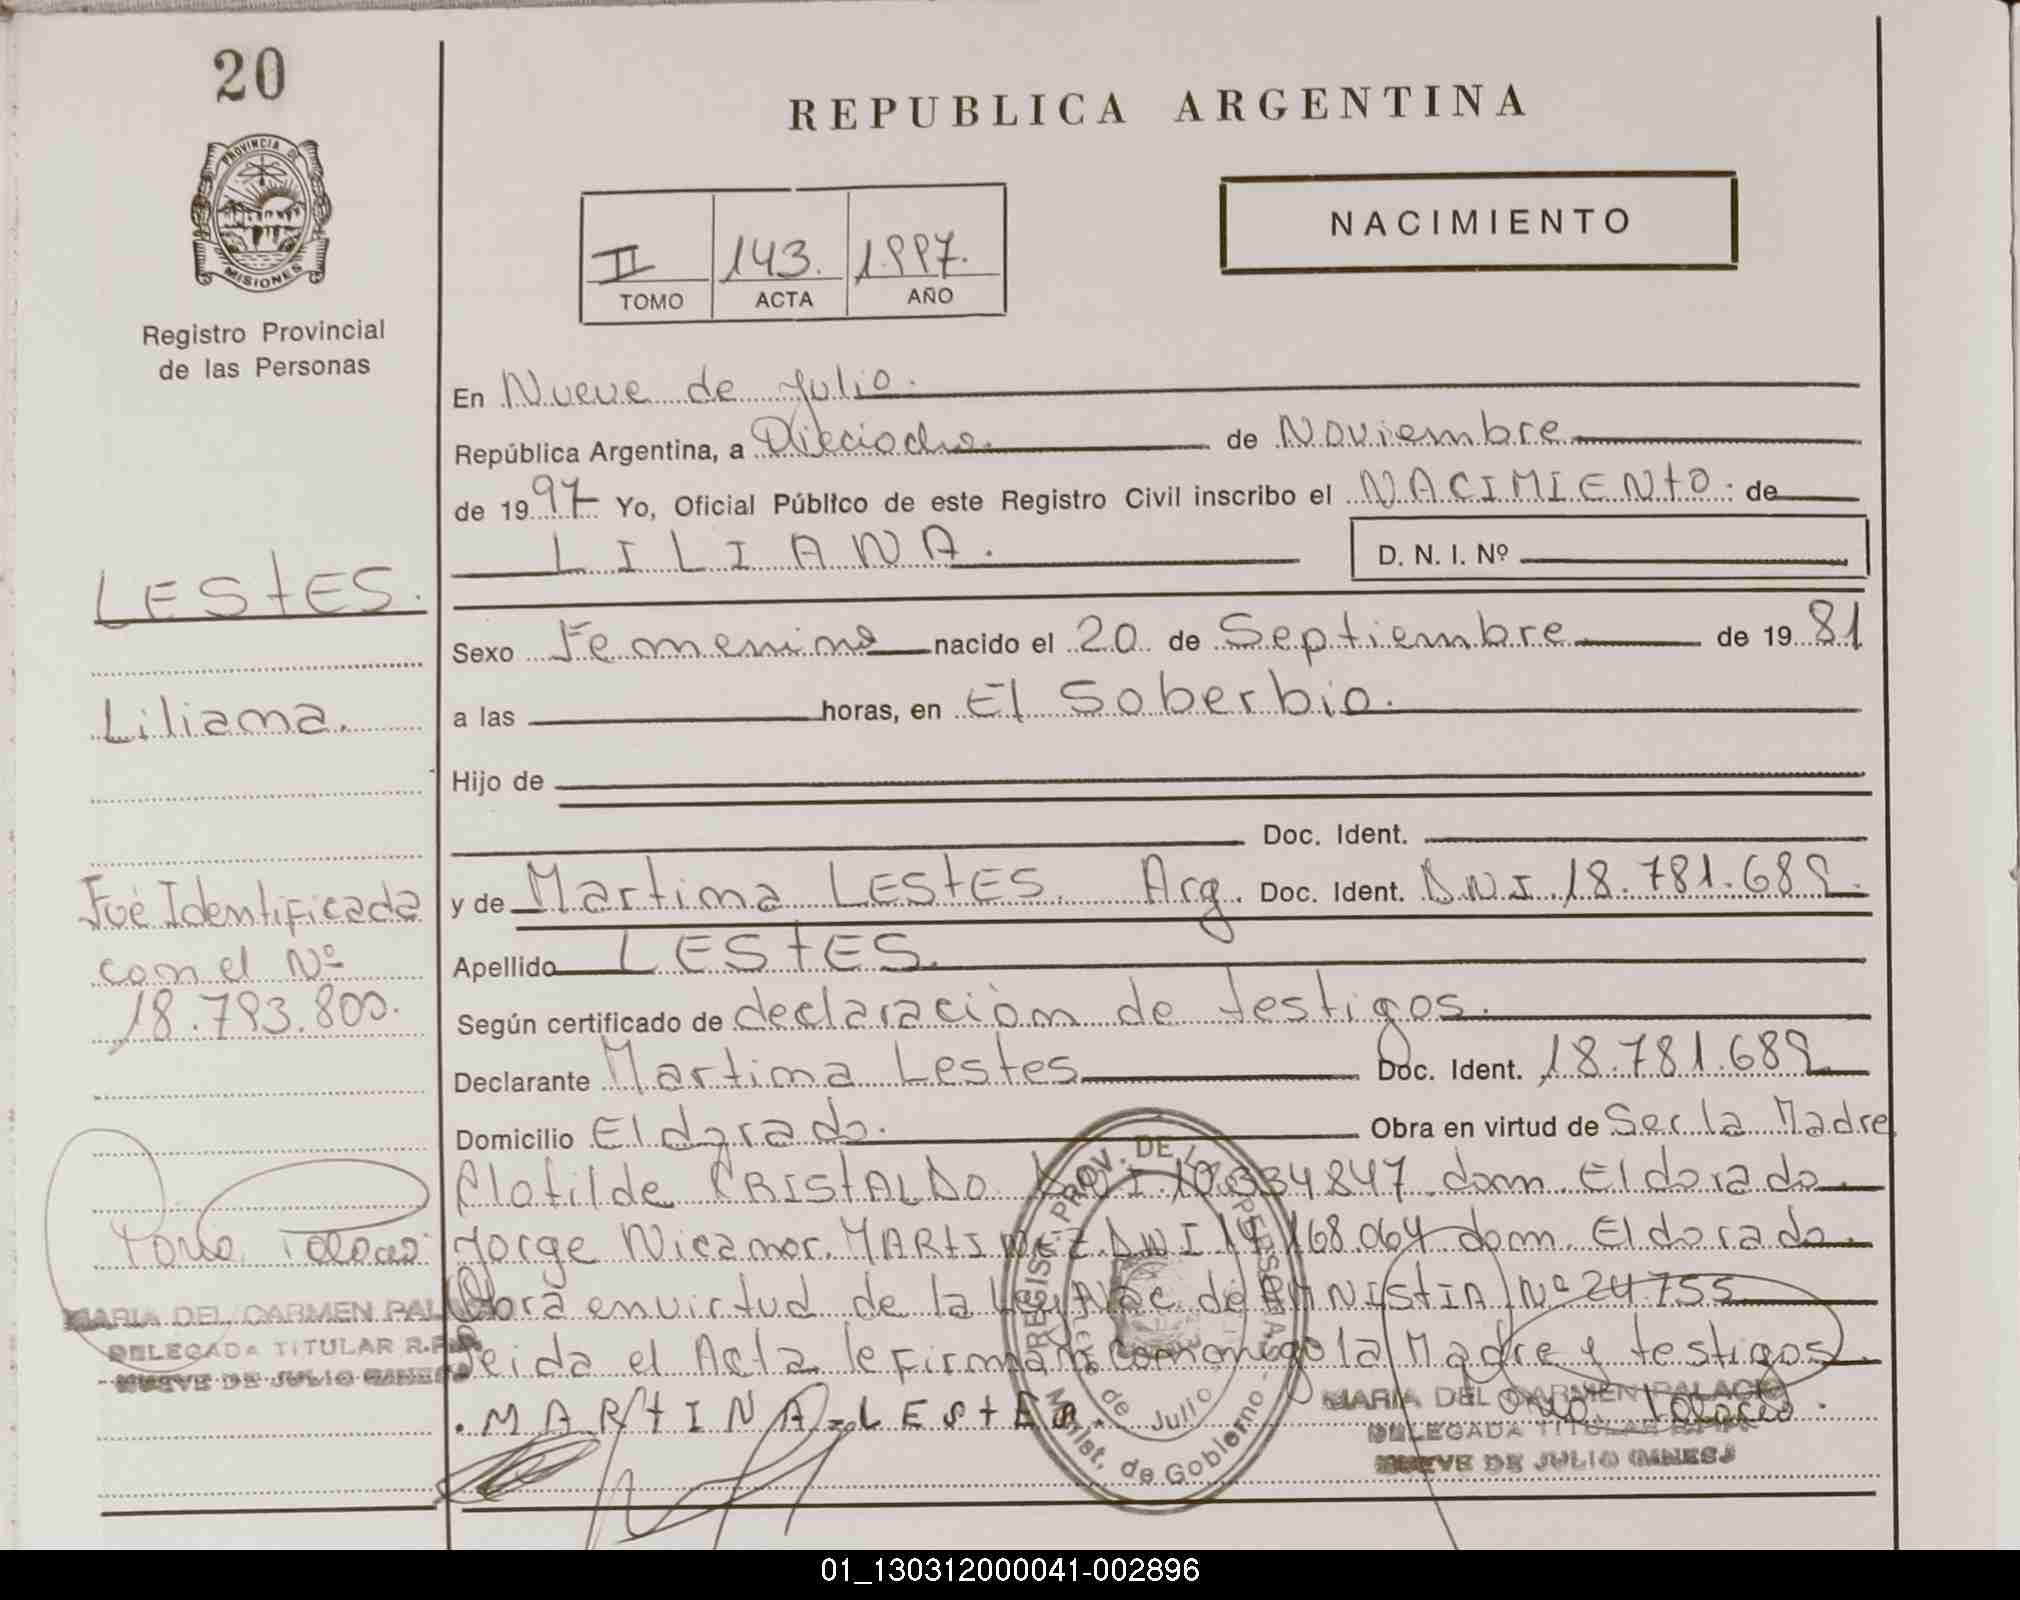 20
PROVINCIA DE
MISIONES
Registro Provincial
de las Personas
LEStES.
Liliana.
Fué Identificada
con el Nº
18.793.800.
MARIA DEL CARMEN PALACIO
DELEGADA TITULAR R.P.P.
NUEVE DE JULIO (MNES)
REPUBLICA ARGENTINA
NACIMIENTO
II 143. 1997.
TOMO ACTA AÑO
En Nueve de Julio.
República Argentina, a Dieciocho de Noviembre
de 1997 Yo, Oficial Público de este Registro Civil inscribo el NACIMIENtO de
LILIANA. D. N. I. Nº
Sexo Femenino nacido el 20 de Septiembre de 1981
a las horas, en El Soberbio.
Hijo de
Doc. Ident.
y de Martina LEStES. Arg. Doc. Ident. D.N.I. 18.781.689.
Apellido LEStES.
Según certificado de declaración de testigos.
Declarante Martina Lestes Doc. Ident. 18.781.689
Domicilio Eldorado. Obra en virtud de Ser la Madre
Clotilde CRIStALDO DNI 10.334847 dom. Eldorado.
Jorge Nicanor MARtINEZ DNI 14.168.064 dom. Eldorado.
Obra en virtud de la Ley Nac. de AMNIStIA Nº 24755
Leida el Acta le firman conmigo la Madre y testigos
MARtINA LEStES
REGIST. PROV. DE LAS PERSONAS
Nueve de Julio
Minist. de Gobierno
MARIA DEL CARMEN PALACIO
DELEGADA TITULAR R.P.P.
NUEVE DE JULIO (MNES)
01_130312000041-002896